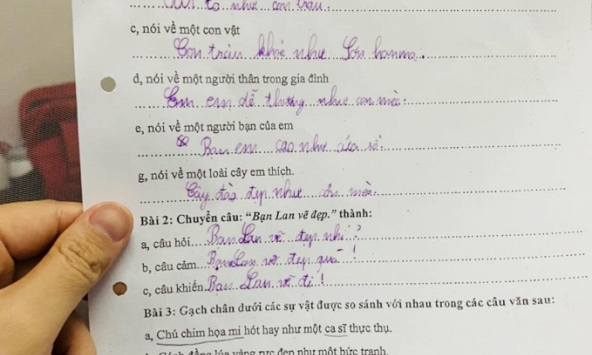 to như con trâu.
c, nói về một con vật
Con trâu khỏe như Son hanma.
d, nói về một người thân trong gia đình
Em em dễ thương như con mèo.
e, nói về một người bạn của em
Bạn em cao như cửa sổ.
g, nói về một loài cây em thích.
Cây đào đẹp như
Bài 2: Chuyển câu: “Bạn Lan vẽ đẹp.” thành:
a, câu hỏi Bạn Lan vẽ đẹp nhỉ?
b, câu cảm Bạn Lan vẽ đẹp quá!
c, câu khiến Bạn Lan vẽ đi!
Bài 3: Gạch chân dưới các sự vật được so sánh với nhau trong các câu văn sau:
a, Chú chim họa mi hót hay như một ca sĩ thực thụ.
b, Cánh đồng lúa vàng rực đẹp như một bức tranh.